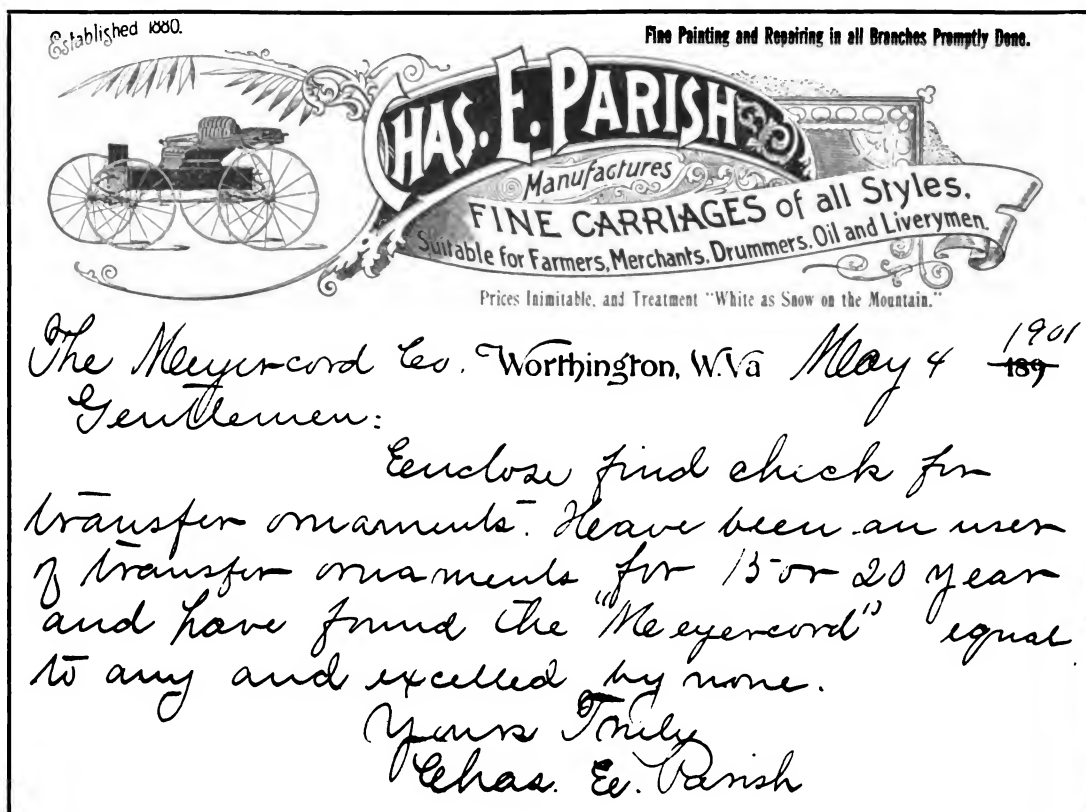 Established 1880.
Fine Painting and Repairing in all Branches Promptly Done.
CHAS. E. PARISH
Manufactures
FINE CARRIAGES of all Styles.
Suitable for Farmers, Merchants, Drummers, Oil and Liverymen.
Prices Inimitable, and Treatment "White as Snow on the Mountain."
1901
The Meyercord Co. Worthington, W.Va May 4 189
Gentlemen:
Enclose find check for
transfer ornaments. Have been an user
of transfer ornaments for 15 or 20 year
and have found the "Meyercord" equal
to any and excelled by none.
Yours Truly
Chas. E. Parish